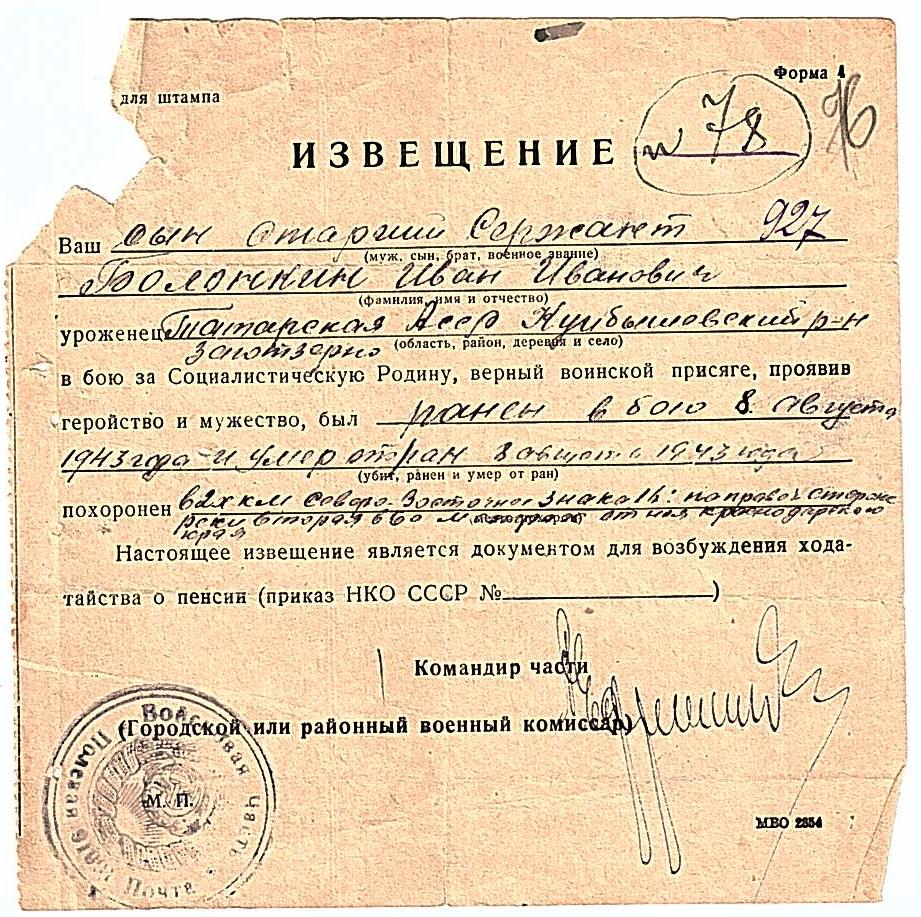 Форма 4
для штампа
ИЗВЕЩЕНИЕ
N 78
76
Ваш сын старший Сержант 927
(муж, сын, брат, военное звание)
Болонкин Иван Иванович
(фамилия, имя и отчество)
уроженец Татарская Асср Куйбышевский р-н
(область, район, деревня и село)
Заготзерно
в бою за Социалистическую Родину, верный воинской присяге, проявив
геройство и мужество, был ранен в бою 8. августа
1943 года и умер от ран 8 августа 1943 года
(убит, ранен и умер от ран)
похоронен в 2х км Северо Восточнее знака 1Б: на правой стороне
реки вторая краснодарского
края
Настоящее извещение является документом для возбуждения хода-
тайства о пенсии (приказ НКО СССР № )
Командир части
(Городской или районный военный комиссар)
М. П.
Войсковая Часть Полевая Почта
МВО 2354